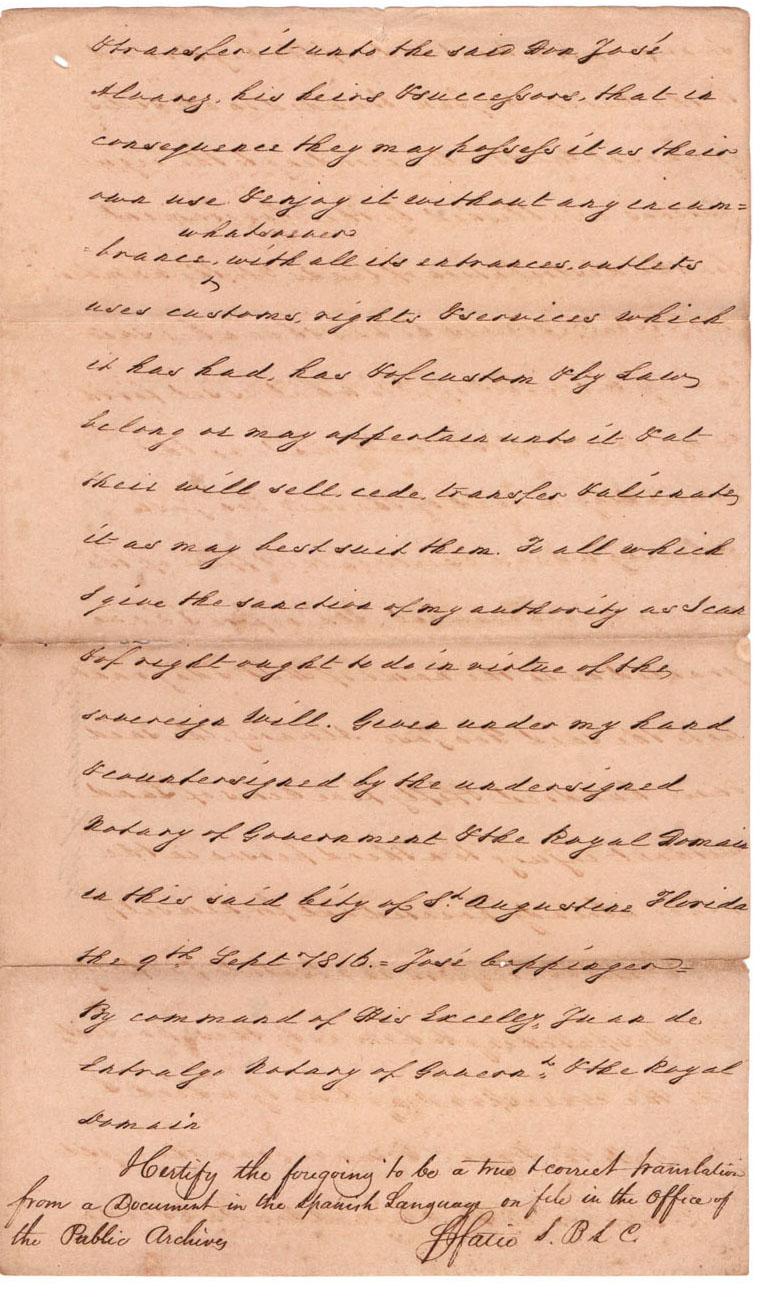 & transfer it unto the said Don José
Alvarez, his heirs & successors, that in
consequence they may possess it as their
own use & enjoy it without any incum=
whatsoever
=brance, with all its entrances, outlets
uses customs, rights & services which
it has had, has & of custom & by Law
belong or may appertain unto it & at
their will sell, cede, transfer & alienate
it as may best suit them. To all which
I give the sanction of my authority as I can
& of right ought to do in virtue of the
sovereign Will. Given under my hand
& countersigned by the undersigned
Notary of Government & the Royal Domain
in this said City of St. Augustine Florida
the 9th Sept 1816. = José Coppinger =
By command of His Excelly, Juan de
Entralgo Notary of Governt. & the Royal
Domain
I Certify the foregoing to be a true & correct translation
from a Document in the Spanish Language on file in the Office of
the Public Archives Fatio S. B L C.